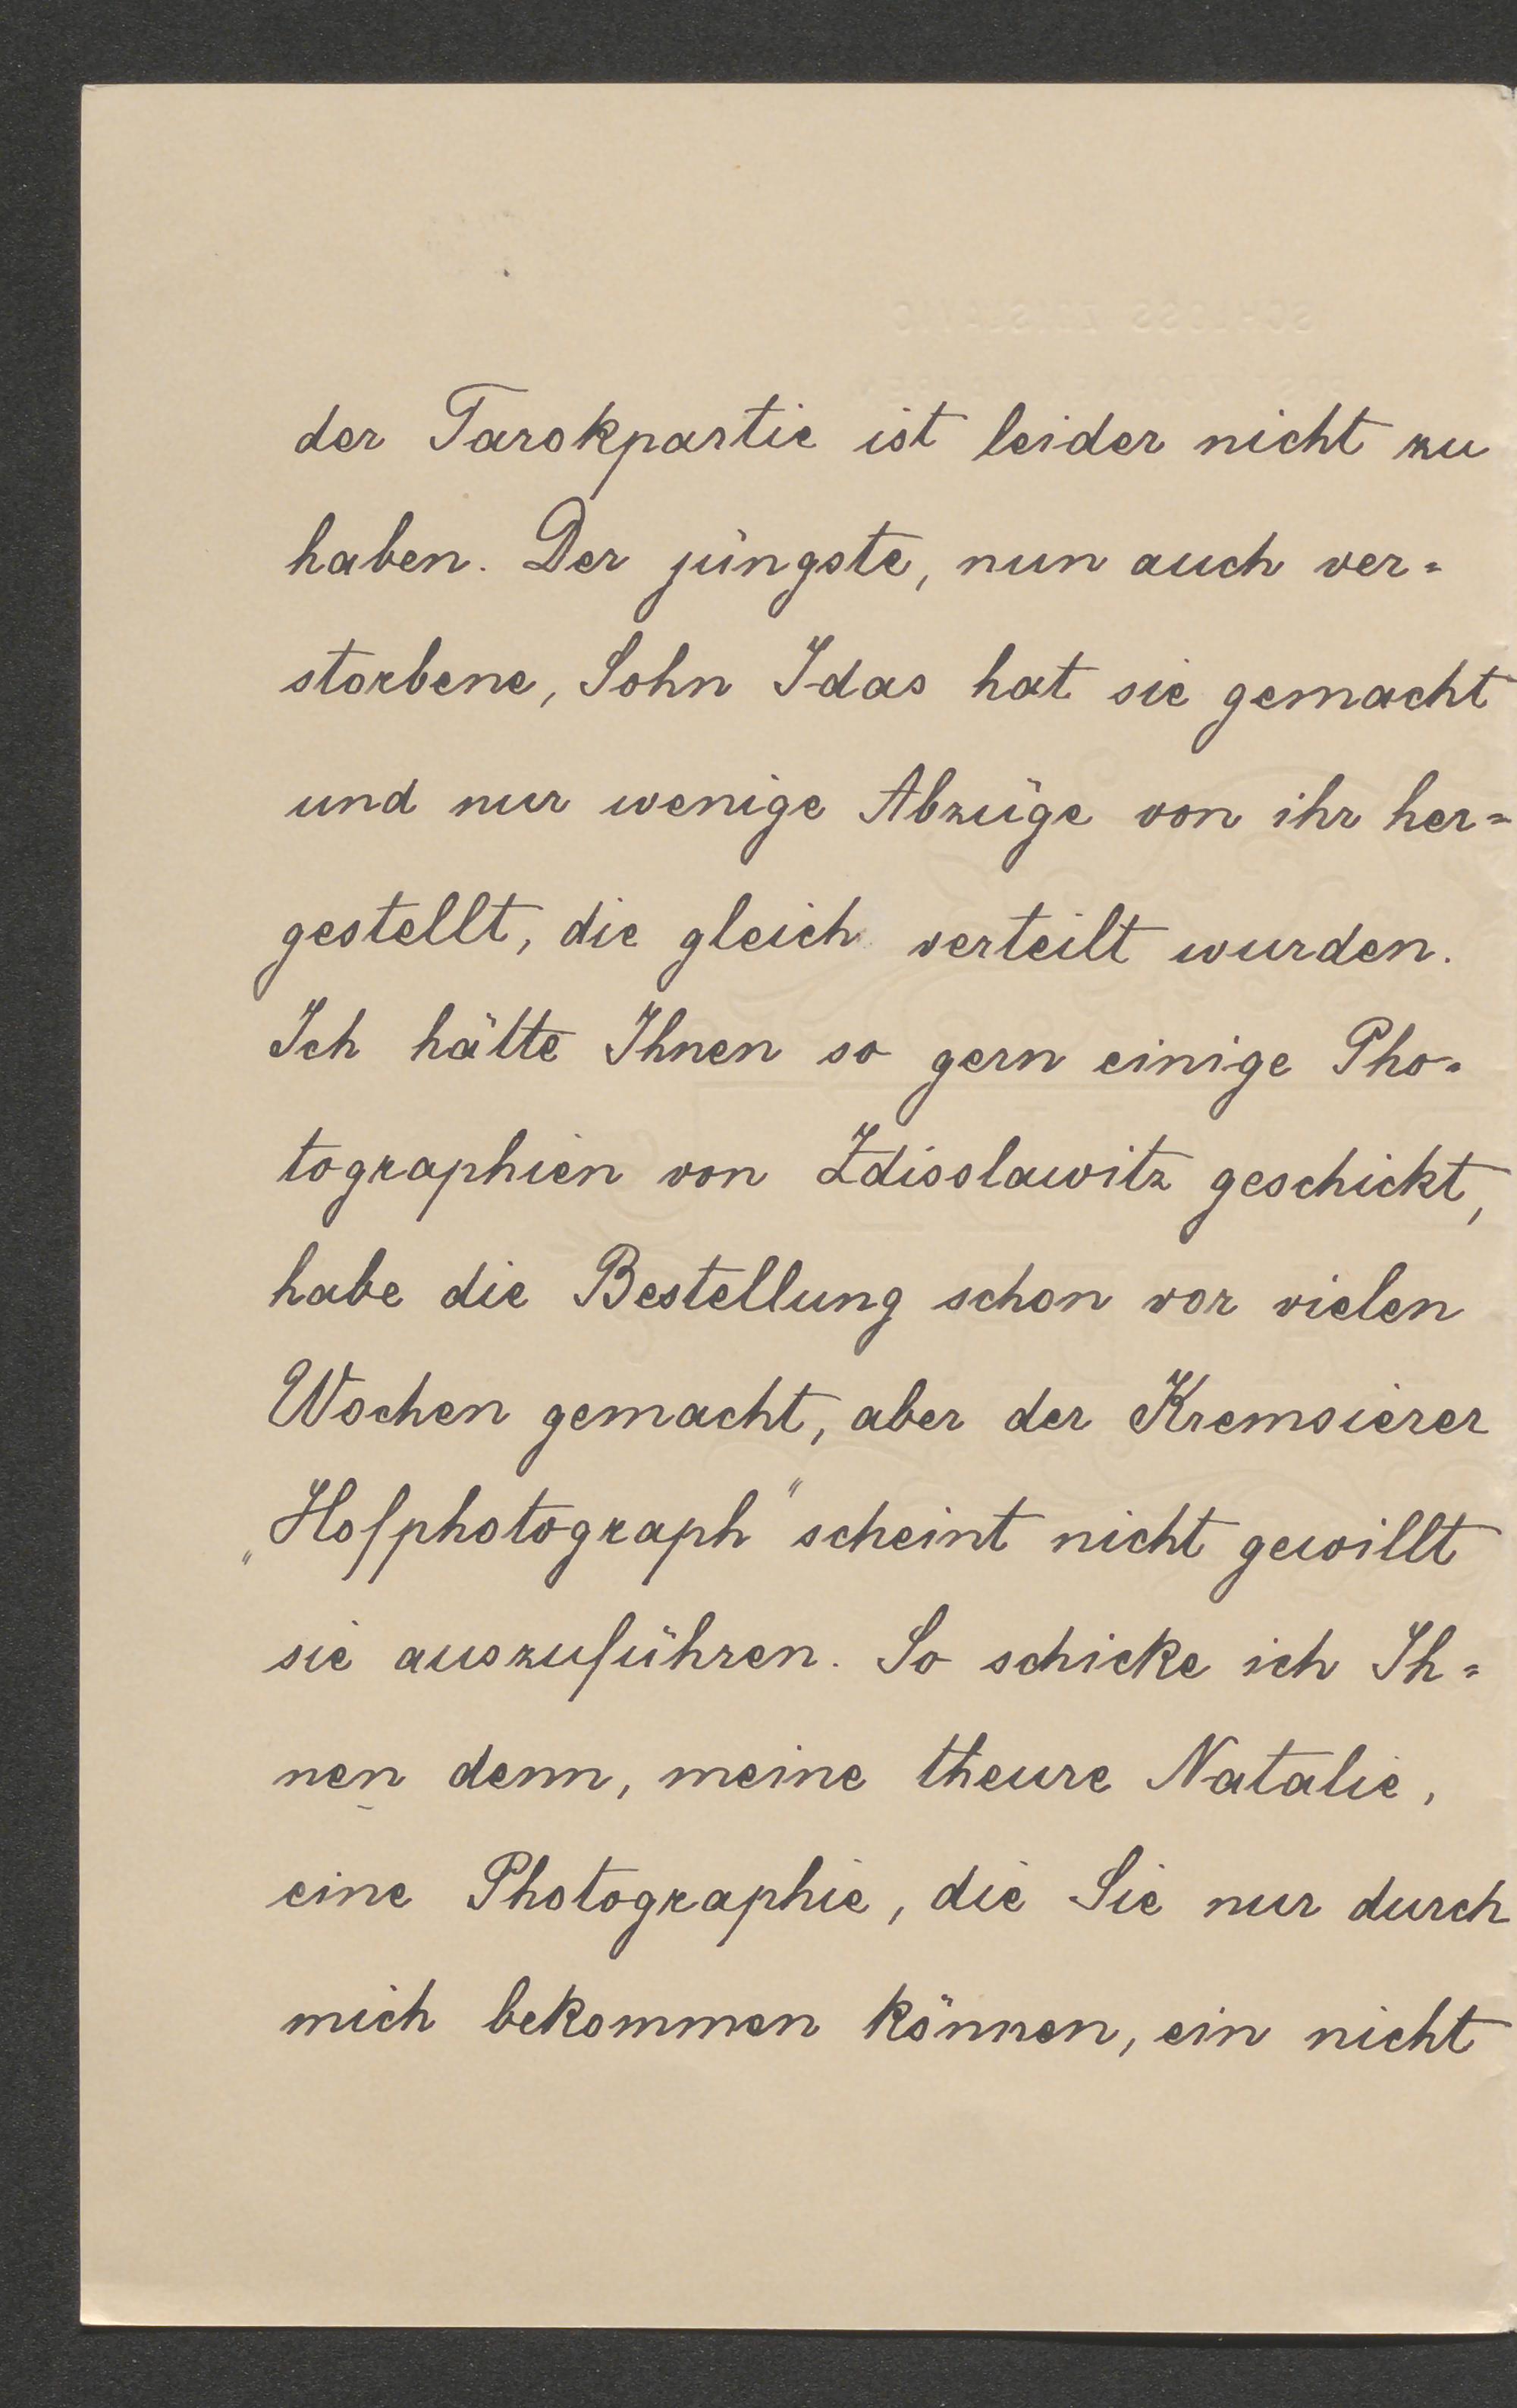 der Tarokpartie ist leider nicht zu
haben. Der jüngste, nun auch ver=
storbene, Sohn Idas hat sie gemacht
und nur wenige Abzüge von ihr her=
gestellt, die gleich verteilt wurden.
Ich hätte Ihnen so gern einige Pho=
tographien von Zdisslawitz geschickt,
habe die Bestellung schon vor vielen
Wochen gemacht, aber der Kremsierer
„Hofphotograph" scheint nicht gewillt
sie auszuführen. So schicke ich Ih=
nen denn, meine theure Natalie,
eine Photographie, die Sie nur durch
mich bekommen können, ein nicht